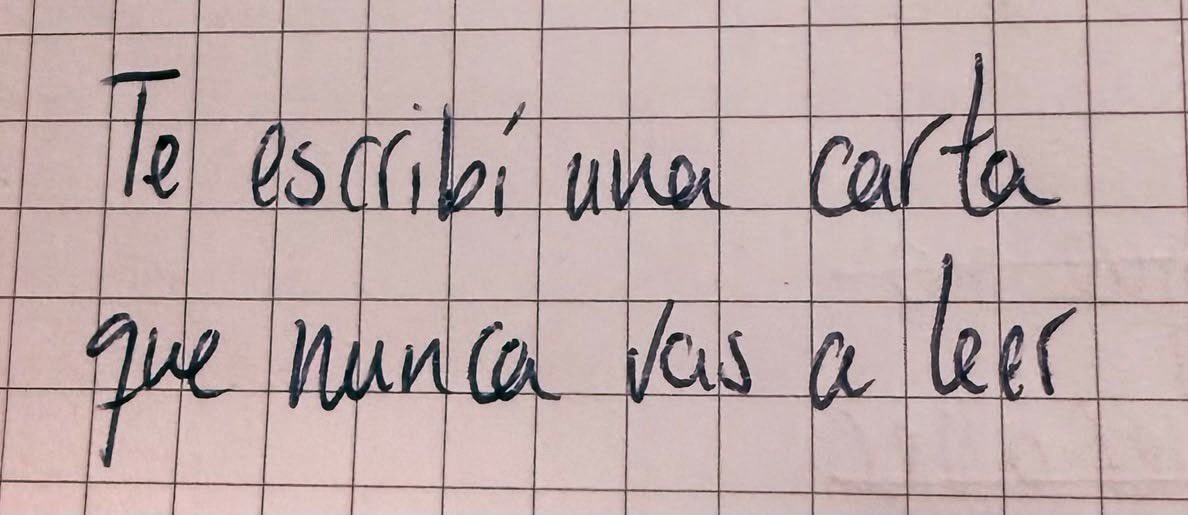 Te escribí una carta
que nunca vas a leer